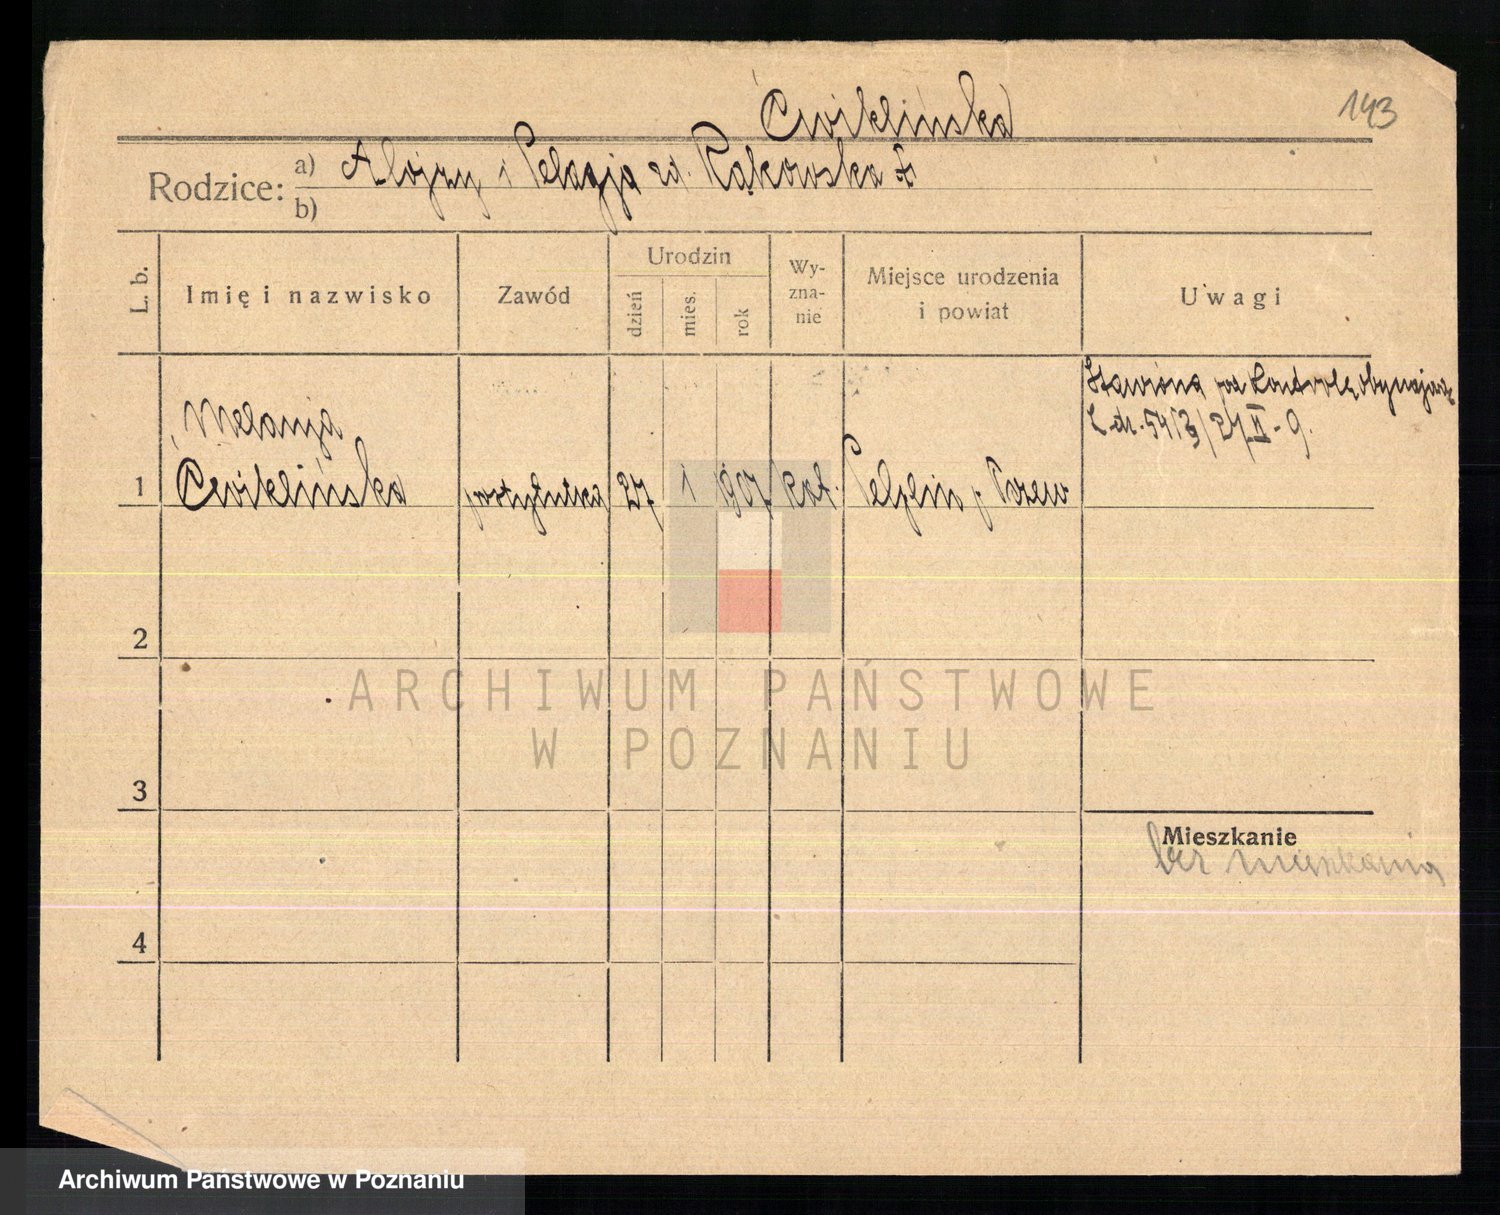 Ćwiklińska
143
Rodzice: a) Alojzy i Pelagja zd. Rąkowska
b)
L. b. Imię i nazwisko Zawód Urodzin dzień mies. rok Wyznanie Miejsce urodzenia i powiat Uwagi
Stawiona pod kontrolę obyczajową
L. dz. 5413/27/II-9.
Melanja
1 Ćwiklińska prostytutka 27 1 1907 kat. Pelplin p. Tczew
2
ARCHIWUM PAŃSTWOWE
W POZNANIU
3
Mieszkanie
bez mieszkania
4
Archiwum Państwowe w Poznaniu